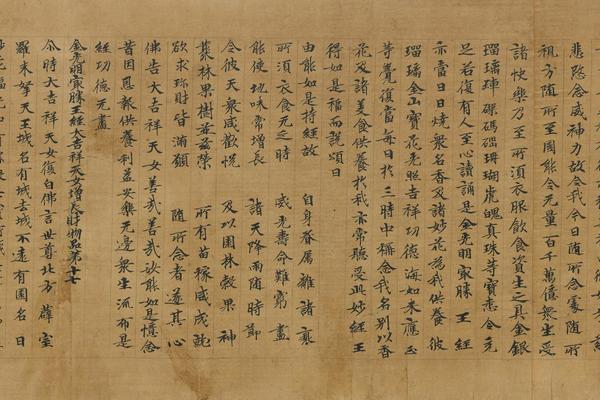 悲愍念威神力故令我今日隨所念處隨所
視方隨所至國能令无量百千萬億眾生受
諸快樂乃至所須衣服飲食資生之具金銀
瑠璃車磲碼碯珊瑚虎魄真珠等寶悉令充
足若復有人至心讀誦是金光明最勝王經
亦當日日燒眾名香及諸妙花為我供養彼
瑠璃金山寶花光照吉祥功德海如來應正
等覺復當每日於三時中稱念我名別以香
花及諸美食供養於我亦常聽受此妙經王
得如是福而說頌曰
由能如是持經故 自身眷屬離諸衰
所須衣食无乏時 威光壽命難窮盡
能使地味常增長 諸天降雨隨時節
令彼天眾咸歡悅 及以園林穀果神
叢林果樹並滋榮 所有苗稼咸成就
欲求珍財皆滿願 隨所念者遂其心
佛告大吉祥天女善哉善哉汝能如是憶念
昔因恩報供養利益安樂无邊眾生流布是
經功德无盡
金光明最勝王經大吉祥天女增長財物品第十七
尒時大吉祥天女復白佛言世尊北方薜室
羅末拏天王城名有城去城不遠有園名曰